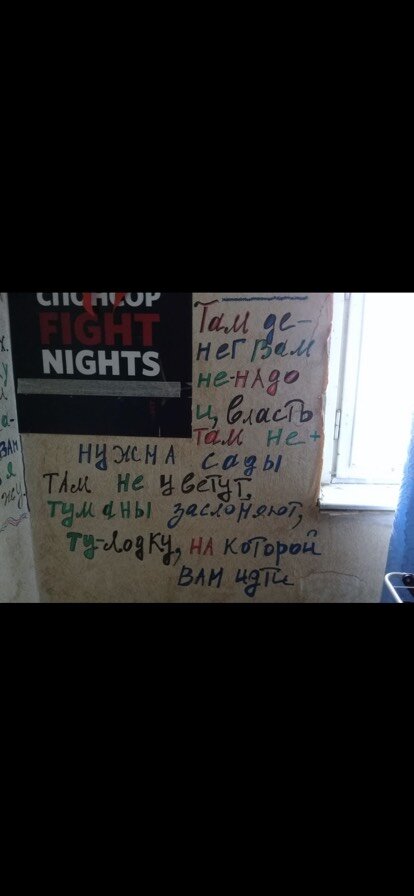 СПОНСОР
FIGHT
NIGHTS
Там де-
нег Вам
не-надо
и, власть
там не +
нужна сады
там не цветут,
туманы заслоняют,
ту-лодку, на которой
вам идти
х.
у
а-
вам
я
жу-